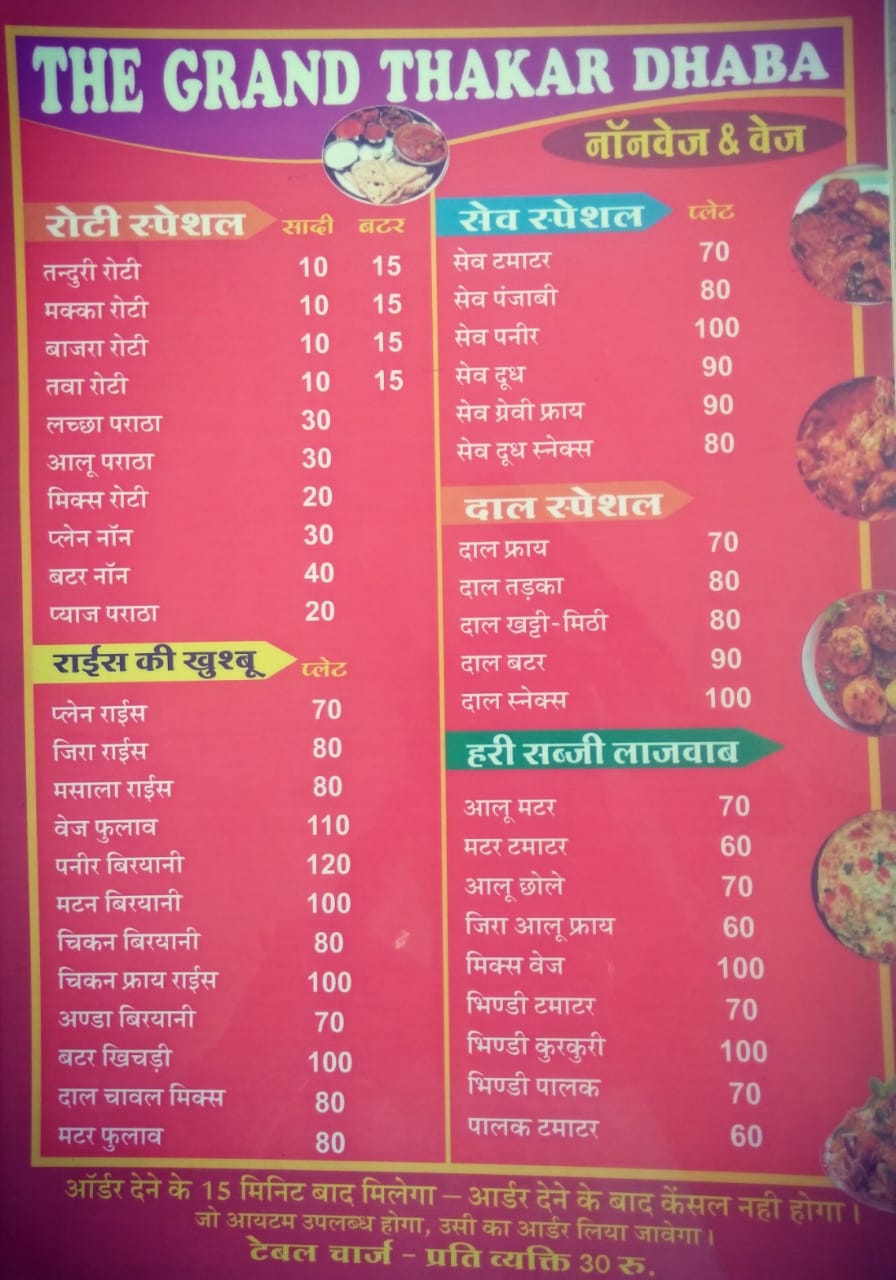 THE GRAND THAKAR DHABA
नॉनवेज & वेज
रोटी स्पेशल सादी बटर
तन्दुरी रोटी 10 15
मक्का रोटी 10 15
बाजरा रोटी 10 15
तवा रोटी 10 15
लच्छा पराठा 30
आलू पराठा 30
मिक्स रोटी 20
प्लेन नॉन 30
बटर नॉन 40
प्याज पराठा 20
राईस की खुश्बू प्लेट
प्लेन राईस 70
जिरा राईस 80
मसाला राईस 80
वेज फुलाव 110
पनीर बिरयानी 120
मटन बिरयानी 100
चिकन बिरयानी 80
चिकन फ्राय राईस 100
अण्डा बिरयानी 70
बटर खिचड़ी 100
दाल चावल मिक्स 80
मटर फुलाव 80
सेव स्पेशल प्लेट
सेव टमाटर 70
सेव पंजाबी 80
सेव पनीर 100
सेव दूध 90
सेव ग्रेवी फ्राय 90
सेव दूध स्नेक्स 80
दाल स्पेशल
दाल फ्राय 70
दाल तड़का 80
दाल खट्टी-मिठी 80
दाल बटर 90
दाल स्नेक्स 100
हरी सब्जी लाजवाब
आलू मटर 70
मटर टमाटर 60
आलू छोले 70
जिरा आलू फ्राय 60
मिक्स वेज 100
भिण्डी टमाटर 70
भिण्डी कुरकुरी 100
भिण्डी पालक 70
पालक टमाटर 60
ऑर्डर देने के 15 मिनिट बाद मिलेगा – आर्डर देने के बाद केंसल नही होगा।
जो आयटम उपलब्ध होगा, उसी का आर्डर लिया जावेगा।
टेबल चार्ज - प्रति व्यक्ति 30 रु.